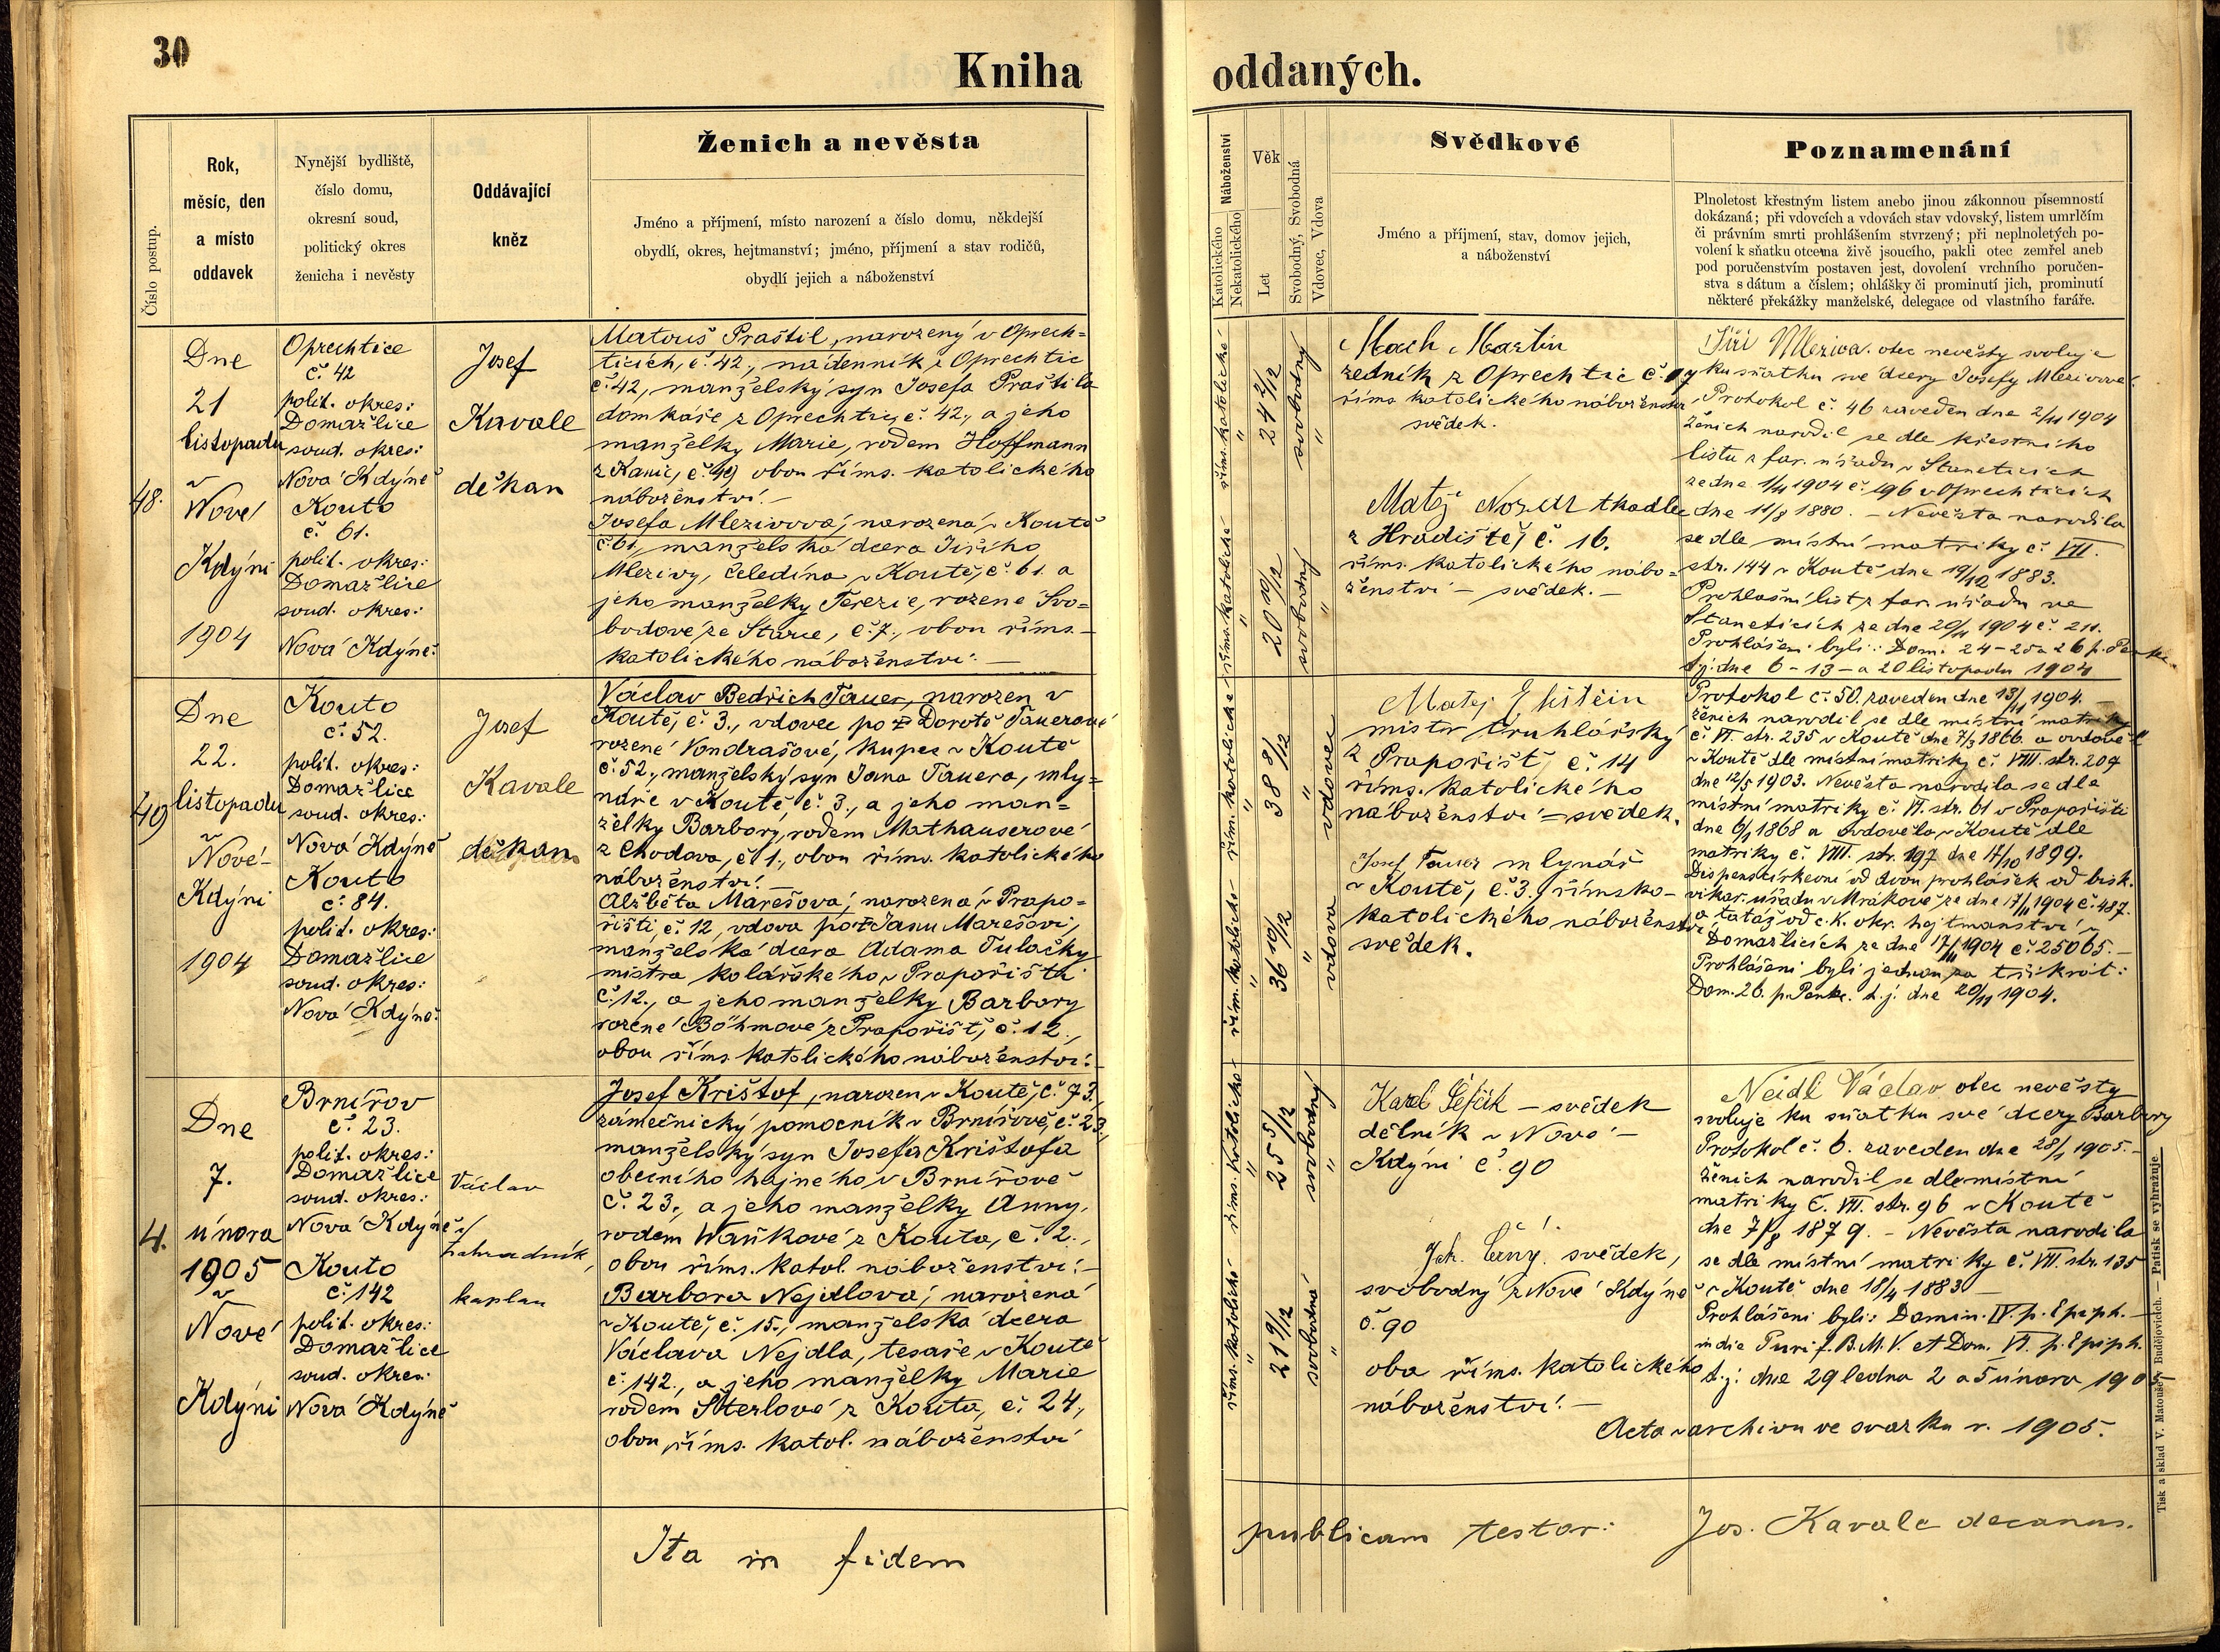 30
Kniha
oddaných.
Číslo postup.
Rok,
měsíc, den
a místo
oddavek
Nynější bydliště,
číslo domu,
okresní soud,
politický okres
ženicha i nevěsty
Oddávající
kněz
Ženich a nevěsta
Jméno a příjmení, místo narození a číslo domu, někdejší
obydlí, okres, hejtmanství; jméno, příjmení a stav rodičů,
obydlí jejich a náboženství
Náboženství
Katolického
Nekatolického
Věk
Let
Svobodný, Svobodná
Vdovec, Vdova
Svědkové
Jméno a příjmení, stav, domov jejich,
a náboženství
Poznamenání
Plnoletost křestným listem anebo jinou zákonnou písemností
dokázaná; při vdovcích a vdovách stav vdovský, listem umrlčím
či právním smrti prohlášením stvrzený; při neplnoletých po-
volení k sňatku otcema živě jsoucího, pakli otec zemřel aneb
pod poručenstvím postaven jest, dovolení vrchního poručen-
stva s dátum a číslem; ohlášky či prominutí jich, prominutí
některé překážky manželské, delegace od vlastního faráře.
48.
Dne
21
listopadu
v
Nové
Kdýni
1904
Oprechtice
č. 42
polit. okres:
Domažlice
soud. okres:
Nová Kdýně
Kouto
č. 61.
polit. okres:
Domažlice
soud. okres:
Nová Kdýně.
Josef
Kavale
děkan
Matouš Praštil, narozený v Oprech=
ticích, č. 42., nádenník z Oprechtic
č. 42, manželský syn Josefa Praštila
domkáře z Oprechtic, č. 42., a jeho
manželky Marie, rodem Hoffmann
z Kanic, č. 49 obou říms. katolického
náboženství. –
Josefa Mlezivová, narozená v Koutě
č. 61, manželská dcera Jiřího
Mlezivy, čeledína v Koutě, č. 61. a
jeho manželky Terezie, rozené Svo=
bodové, ze Starce, č. 7., obou říms. –
katolického náboženství. –
říms. katolické
"
24 2/12
svobodný
"
říms. katolické
"
20 10/12
svobodný
"
Mach Martin
řezník z Oprechtic č.
říms. katolického náboženství
svědek.
Matěj tkadlec
z Hradiště, č. 16.
říms. katolického nábo=
ženství – svědek. –
Jiří Mleziva. otec nevěsty svoluje
ku sňatku své dcery Josefy Mlezivové.
Protokol č. 46 zaveden dne 2/11 1904
Ženich narodil se dle křestního
listu z far. úřadu v Stanetících
ze dne 1/11 1904 č. 196 v Oprechticích
dne 11/8 1880. – Nevěsta narodila
se dle místní matriky č. VII.
str. 144 v Koutě dne 19/12 1883.
Prohlašní list z far. úřadu ve
Stanetících ze dne 20/11 1904 č. 211.
Prohlášeni byli: Dom. 24 – 25 a 26 p. Pent.
tj. dne 6 – 13 – a 20 listopadu 1904
49
Dne
22.
listopadu
v
Nové
Kdýni
1904
Kouto
č. 52.
polit. okres:
Domažlice
soud. okres:
Nová Kdýně
Kouto
č. 84.
polit. okres:
Domažlice
soud. okres:
Nová Kdýně.
Josef
Kavale
děkan
Václav Bedřich Tauer, narozen v
Koutě, č. 3., vdovec po † Dorotě Tauerové
rozené Vondrašové, kupec v Koutě
č. 52., manželský syn Jana Tauera, mly=
náře v Koutě č. 3., a jeho man=
želky Barbory, rodem Mathauserové
z Chodova, č. 1., obou říms. katolického
náboženství. –
Alžběta Marešová, narozená v Prapo=
řišti, č. 12, vdova po † Janu Marešovi,
manželská dcera Adama Tulačky
mistra kolářského v Prapořišti
č. 12., a jeho manželky Barbory
rozené Böhmové z Prapořišť, č. 12.,
obou říms. katolického náboženství.
řím. katolické
"
38 8/12
"
vdovec
řím. katolické
"
36 10/12
"
vdova
Matěj
mistr truhlářský
z Prapořišť, č. 14
říms. katolického
náboženství = svědek.
Josef Tauer mlynář
v Koutě, č. 3., římsko-
katolického náboženství
svědek.
Protokol č. 50. zaveden dne 13/11 1904. –
Ženich narodil se dle místní matriky
č. VI. str. 235 v Koutě dne 7/3 1866 a ovdověl
v Koutě dle místní matriky č. VIII. str. 209
dne 12/5 1903. Nevěsta narodila se dle
místní matriky č. VI. str. 61 v Prapořišti
dne 6/1 1868 a ovdověla v Koutě dle
matriky č. VIII. str. 197 dne 17/10 1899.
Dispens církevní od dvou prohlášek od bisk.
vikar. úřadu v Mrákově ze dne 17/11 1904 č. 487.
a tatáž od c. k. okr. hejtmanství v
Domažlicích ze dne 17/11 1904 č. 25065. –
Prohlášeni byli jednou za třikrát:
Dom. 26. p. Pentec. t. j. dne 20/11 1904.
4.
Dne
7.
února
1905
v
Nové
Kdýni
Brnířov
č. 23.
polit. okres:
Domažlice
soud. okres:
Nová Kdýně
Kouto
č. 142
polit. okres:
Domažlice
soud. okres:
Nová Kdýně
Václav
Zahradník,
kaplan
Josef Krištof, narozen v Koutě, č. 73.,
zámečnický pomocník v Brnířově, č. 23.,
manželský syn Josefa Krištofa
obecního hajného v Brnířově
č. 23., a jeho manželky Anny,
rodem Waňkové z Kouta, č. 2.,
obou říms. katol. náboženství. –
Barbora Nejdlová, narozená
v Koutě, č. 15., manželská dcera
Václava Nejdla, tesaře v Koutě
č. 142., a jeho manželky Marie
rodem Šterlové z Kouta, č. 24.,
obou říms. katol. náboženství
říms. katolické
"
25 5/12
svobodný
"
říms. katolické
"
21 9/12
svobodná
"
Karel – svědek
dělník v Nové –
Kdýni č. 90
Jak. Černý. svědek,
svobodný z Nové Kdýně
č. 90
oba říms. katolického
náboženství. –
Neidl Václav otec nevěsty
svoluje ku sňatku své dcery Barbory
Protokol č. 6. zaveden dne 28/1 1905. –
Ženich narodil se dle místní
matriky č. VII. str. 96 v Koutě
dne 7/8 1879. – Nevěsta narodila
se dle místní matriky č. VII. str. 135
v Koutě dne 18/4 1883 –
Prohlášeni byli: Domin. IV. p. Epiph. –
in die Purif. B. M. V. et Dom. VI. p. Epiph.
t. j. dne 29 ledna 2 a 5 února 1905
Acta v archivu ve svazku r. 1905.
Ita in fidem
publicam testor:
Jos. Kavale decanus.
Tisk a sklad V. Matouše, Budějovicích. — Patisk se vyhražuje.